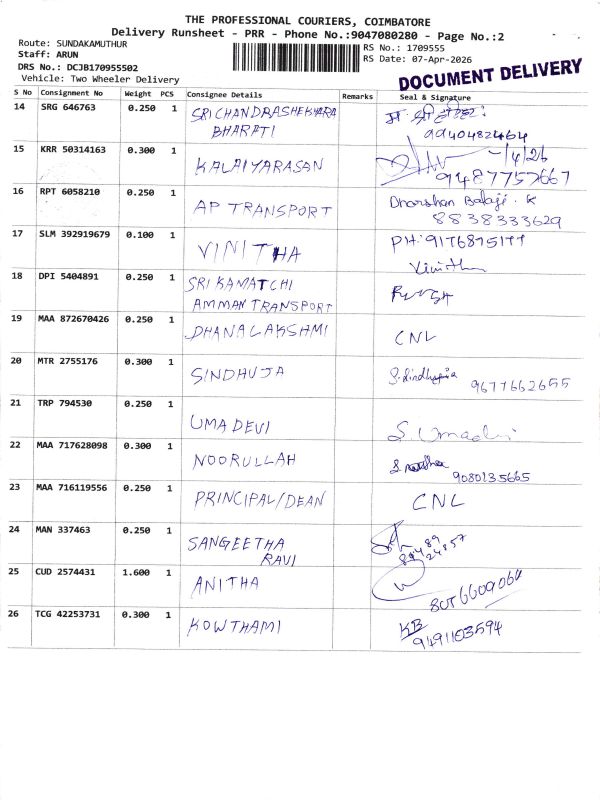 THE PROFESSIONAL COURIERS, COIMBATORE
Delivery Runsheet - PRR - Phone No.:9047080280 - Page No.:2
Route: SUNDAKAMUTHUR
Staff: ARUN
RS No.: 1709555
DRS No.: DCJB170955502
RS Date: 07-Apr-2026
Vehicle: Two Wheeler Delivery
DOCUMENT DELIVERY
S No Consignment No Weight PCS Consignee Details Remarks Seal & Signature
14 SRG 646763 0.250 1 SRI CHANDRASHEKHARA
BHARATI
9940482464
15 KRR 50314163 0.300 1 KALAIYARASAN
9487757667
16 RPT 6058210 0.250 1 AP TRANSPORT Dharshan Balaji. K
8838333629
17 SLM 392919679 0.100 1 VINITHA PH: 9176875177
Vinitha
18 DPI 5404891 0.250 1 SRI KAMATCHI
AMMAN TRANSPORT
19 MAA 872670426 0.250 1 DHANALAKSHMI CNL
20 MTR 2755176 0.300 1 SINDHUJA S. Sindhujia
9677662655
21 TRP 794530 0.250 1 UMA DEVI S. Umadevi
22 MAA 717628098 0.300 1 NOORULLAH
9080135665
23 MAA 716119556 0.250 1 PRINCIPAL/DEAN CNL
24 MAN 337463 0.250 1 SANGEETHA
RAVI
89489
24857
25 CUD 2574431 1.600 1 ANITHA
8056609064
26 TCG 42253731 0.300 1 KOWTHAMI KB
9491103594